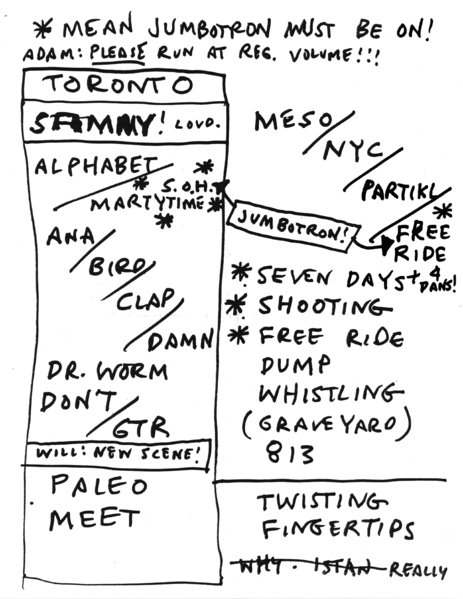 * MEAN JUMBOTRON MUST BE ON!
ADAM: PLEASE RUN AT REG. VOLUME!!!
TORONTO
SAMMY! LOUD.
ALPHABET/
* S.O.H. *
MARTYTIME *
*
ANA/
BIRD/
CLAP/
DAMN
DR. WORM
DON'T/
GTR
WILL: NEW SCENE!
PALEO
MEET
MESO/
NYC/
PARTIKL/
*
FREE
RIDE
JUMBOTRON!
* SEVEN DAYS + 4 DANS!
* SHOOTING
* FREE RIDE
DUMP
WHISTLING
(GRAVEYARD)
813
TWISTING
FINGERTIPS
WHY · ISTAN REALLY